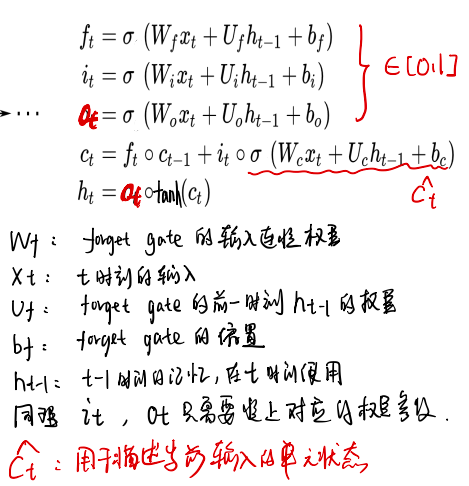 f_t = σ (W_f x_t + U_f h_{t−1} + b_f)
i_t = σ (W_i x_t + U_i h_{t−1} + b_i)
∈[0,1]
… o_t = σ (W_o x_t + U_o h_{t−1} + b_o)
c_t = f_t ∘ c_{t−1} + i_t ∘ σ (W_c x_t + U_c h_{t−1} + b_c)
h_t = o_t ∘ tanh(c_t)
Ĉ_t
W_f : forget gate 的输入连接权重
X_t : t时刻的输入
U_f : forget gate 的前一时刻 h_{t-1} 的权重
b_f : forget gate 的偏置
h_{t-1} : t-1时刻的记忆,在t时刻使用
同理 i_t , O_t 只需要换上对应的权重参数.
Ĉ_t : 用于描述当前输入的单元状态